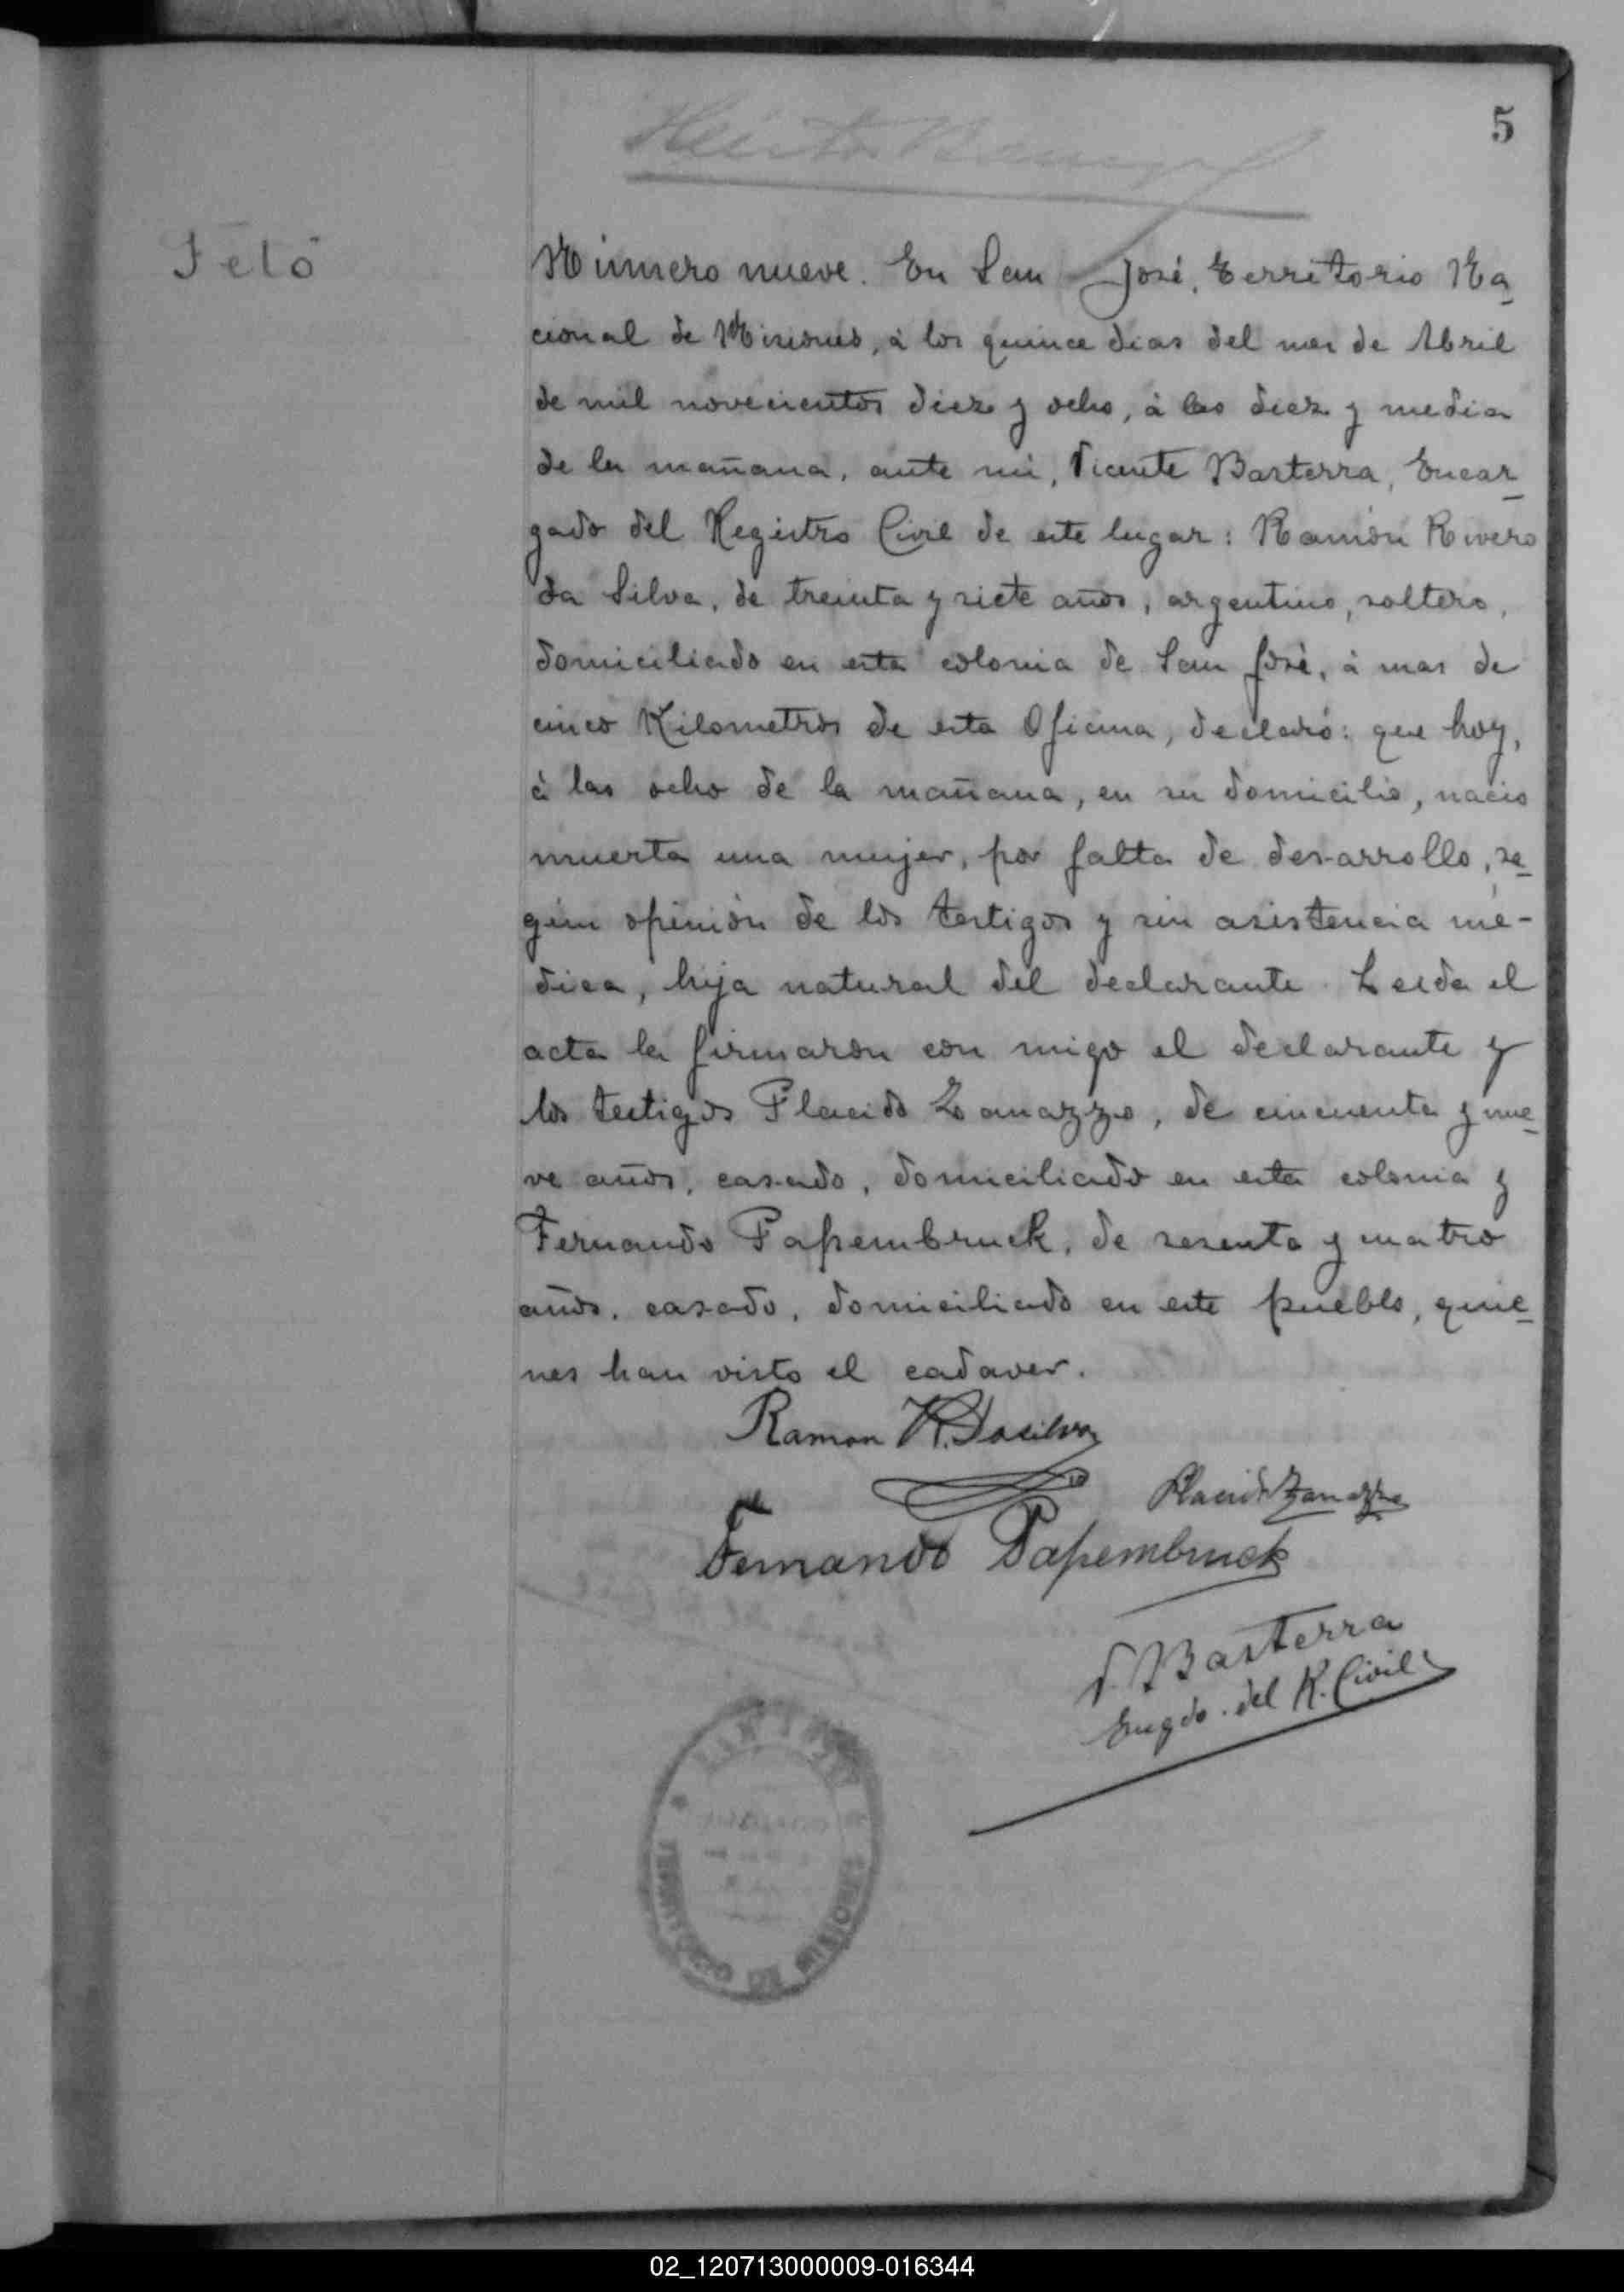 5
Feto
Número nueve. En San José, Territorio Na
cional de Misiones, á los quince dias del mes de Abril
de mil novecientos diez y ocho, á las diez y media
de la mañana, ante mi, Vicente Basterra, Encar
gado del Registro Civil de este lugar: Ramón Rivero
da Silva, de treinta y siete años, argentino, soltero,
domiciliado en esta colonia de San José, á mas de
cinco Kilometros de esta Oficina, declaró: que hoy,
á las ocho de la mañana, en su domicilio, nacio
muerta una mujer, por falta de desarrollo, se
gún opinión de los testigos y sin asistencia mé-
dica, hija natural del declarante. Leida el
acta la firmaron con migo el declarante y
los testigos Placido Zanazzo, de cincuenta y nue
ve años, casado, domiciliado en esta colonia y
Fernando Papembruck, de sesenta y cuatro
años, casado, domiciliado en este pueblo, quie
nes han visto el cadaver.
Ramon R. Dasilva
Placido Zanazzo
Fernando Papembruck
V. Basterra
Engdo. del R. Civil
SAN JOSE
TERRITORIO DE MISIONES
02_120713000009-016344